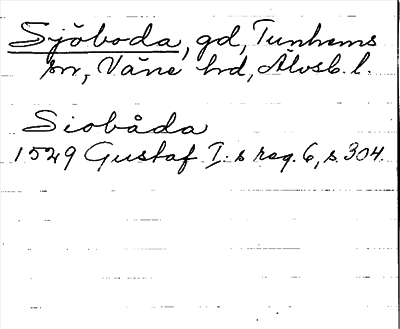 Sjöboda, gd, Tunhems
sn, Väne hd, Älvsb. l.
Siobåda
1529 Gustaf I:s reg. 6, s. 304.